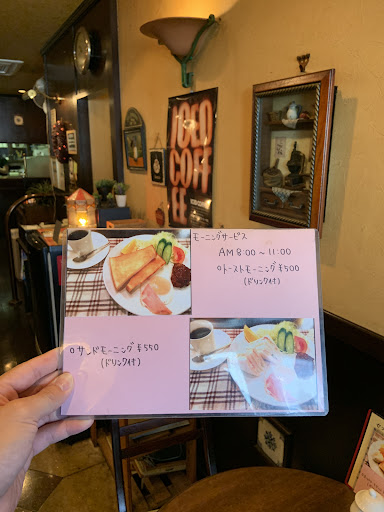 TOCO
COFF
EE
モーニングサービス
AM 8:00〜11:00
○トーストモーニング ¥500
(ドリンク付)
○サンドモーニング ¥550
(ドリンク付)